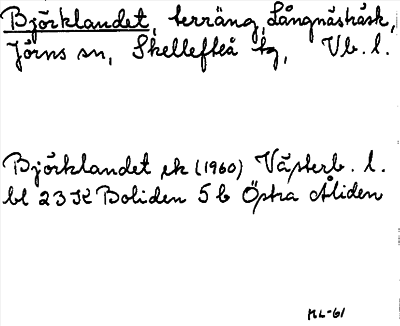 Björklandet, terräng, Långnästräsk,
Jörns sn, Skellefteå tg, Vb. l.
Björklandet ek (1960) Västerb. l.
bl 23 K Boliden 5 b Östra Åliden
ML-61